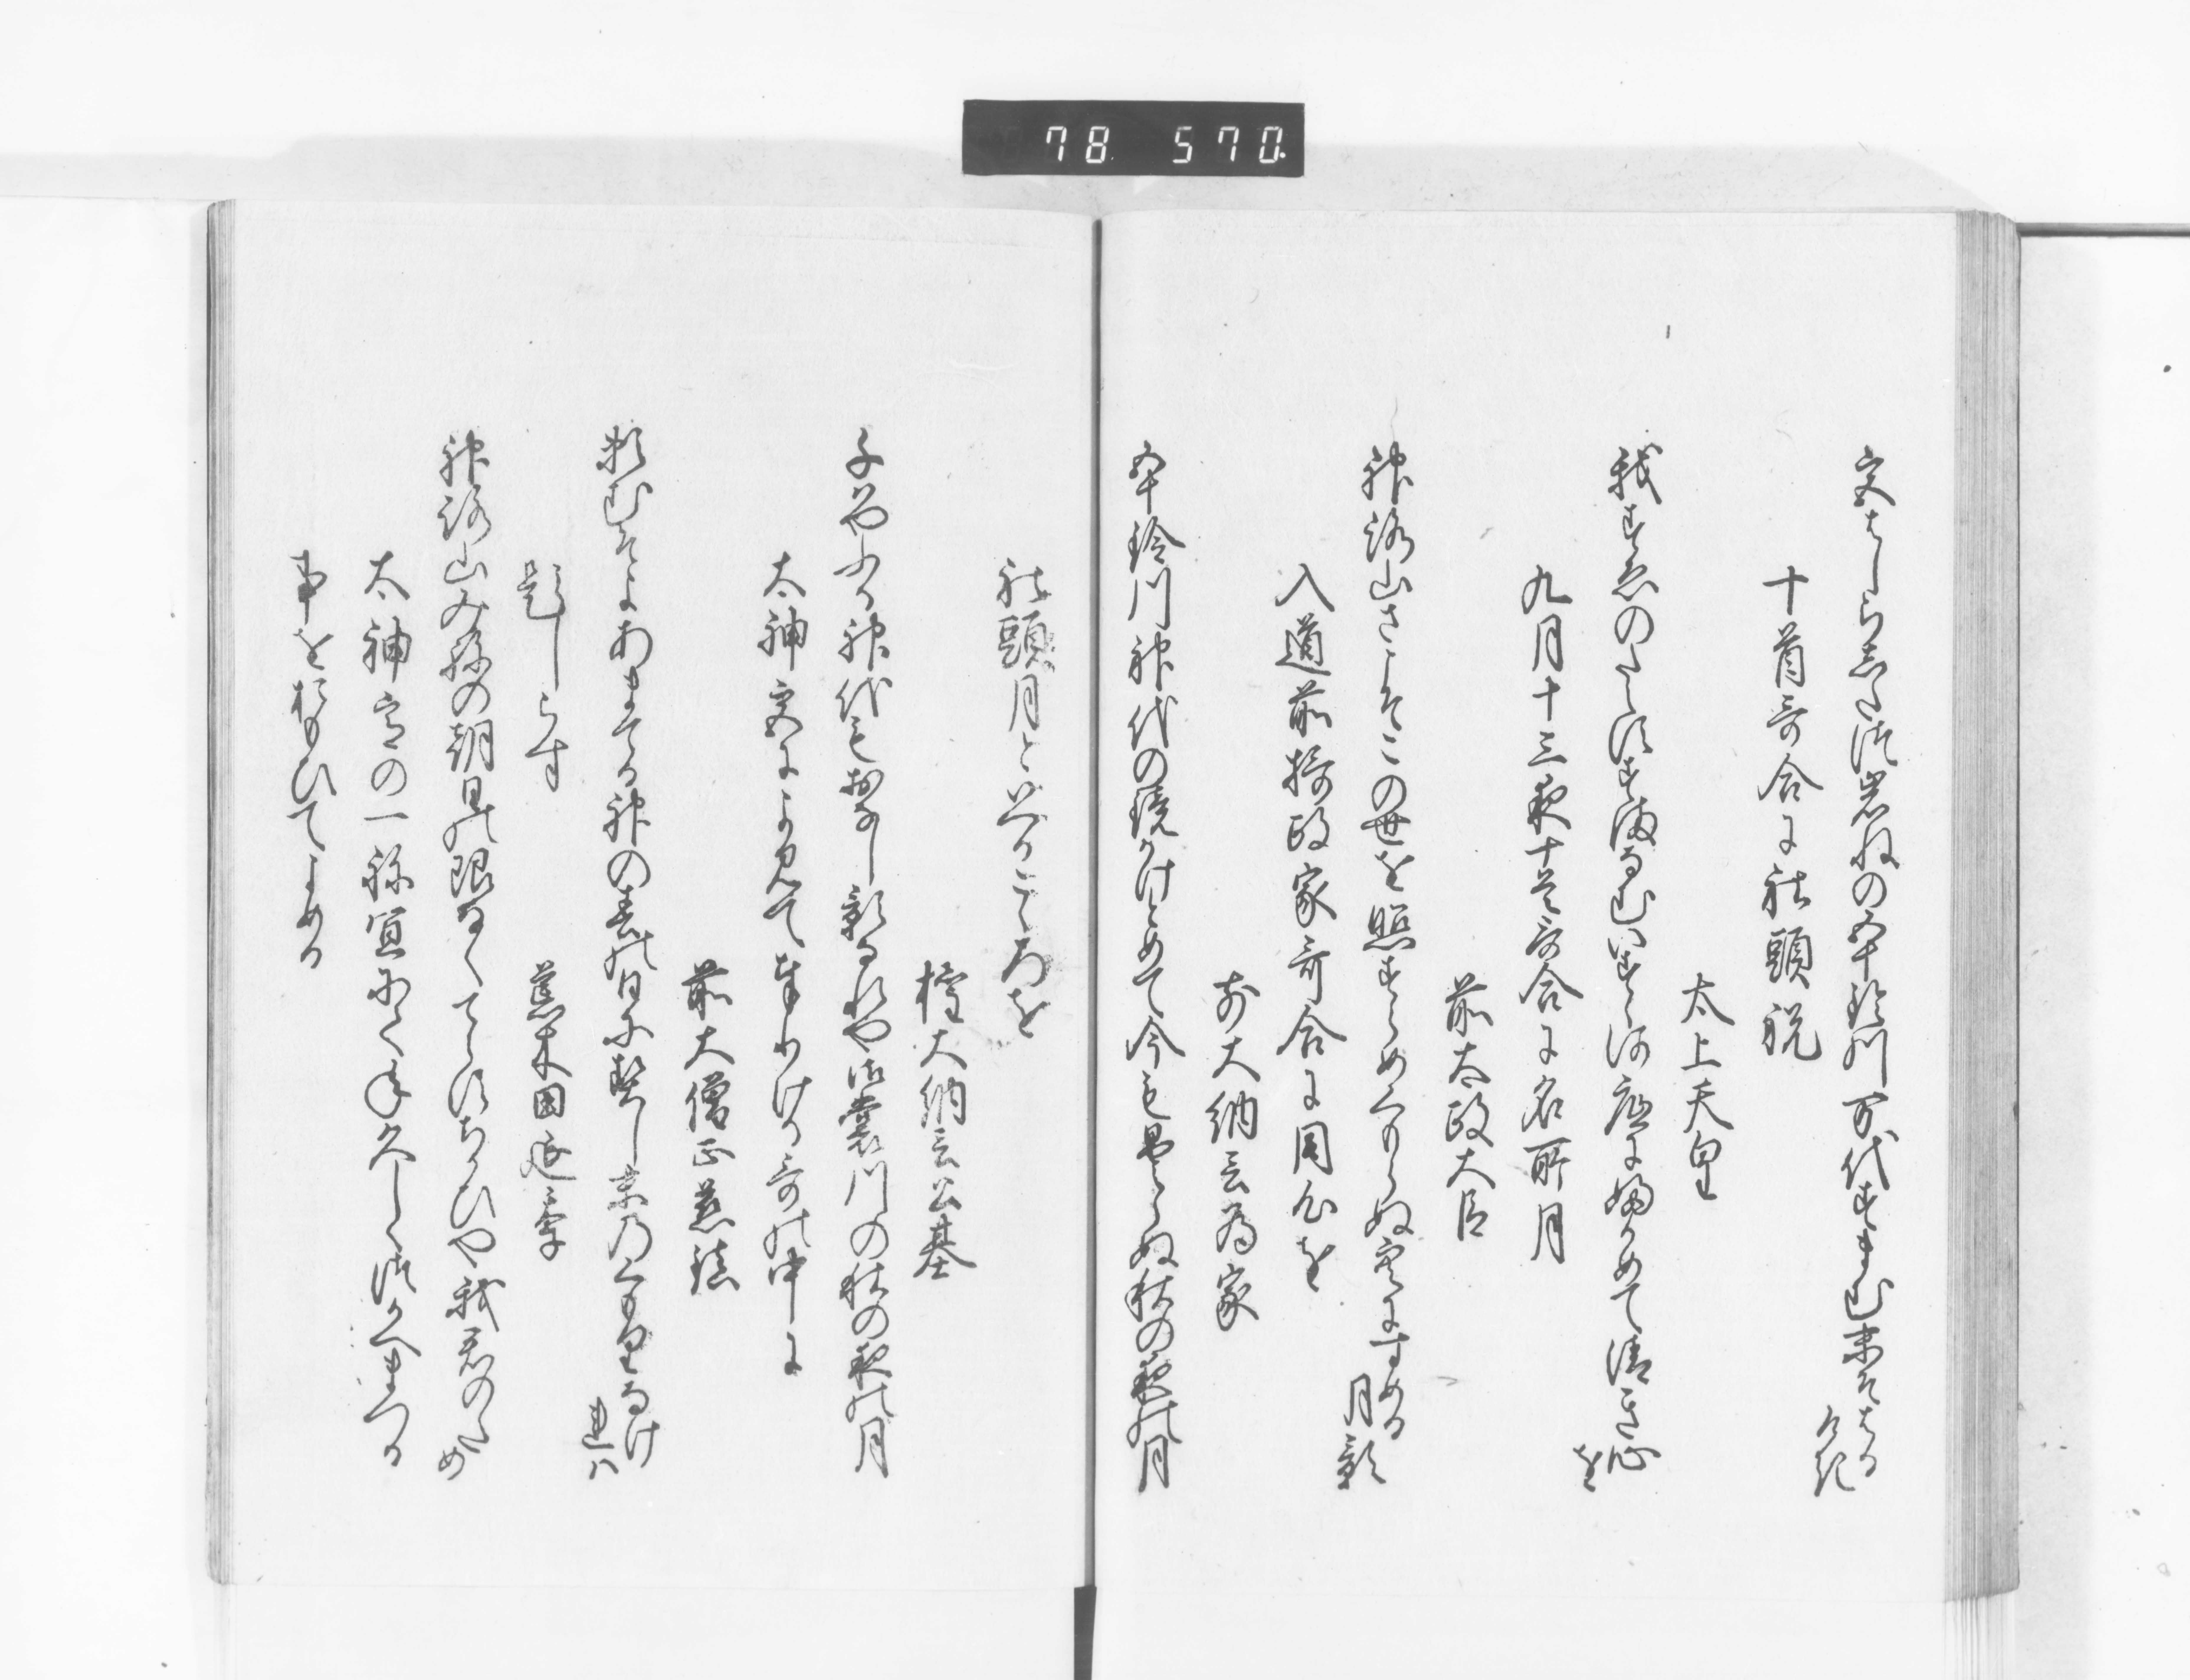 78 570
宮はしらしたつ岩ねの五十鈴川万代すまむ末そはる
けき
十首哥合に社頭祝
太上天皇
我すゑのたえすすまなむいすゝ河底にふかめて清き心
を
九月十三夜十首哥合に名所月
前太政大臣
神路山さこそこの世を照すらめくもらぬ空にすめる
月影
入道前摂政家哥合に同心を
前大納言為家
五十鈴川神代の鏡かけとめて今もくもらぬ秋の夜の月
社頭月といふこゝろを
権大納言公基
千はやふる神代もおなし影なれや御裳川の秋の夜の月
太神宮によみて奉りける哥の中に
前大僧正慈鎮
頼むそよあまてる神の春の日に契し末のくもりなけ
れは
題しらす
荒木田延季
神路山み孫の朝日の限なくてらすちかひや我君のため
太神宮の一祢宜にて年久しくつかへまつる
事を思ひてよめる